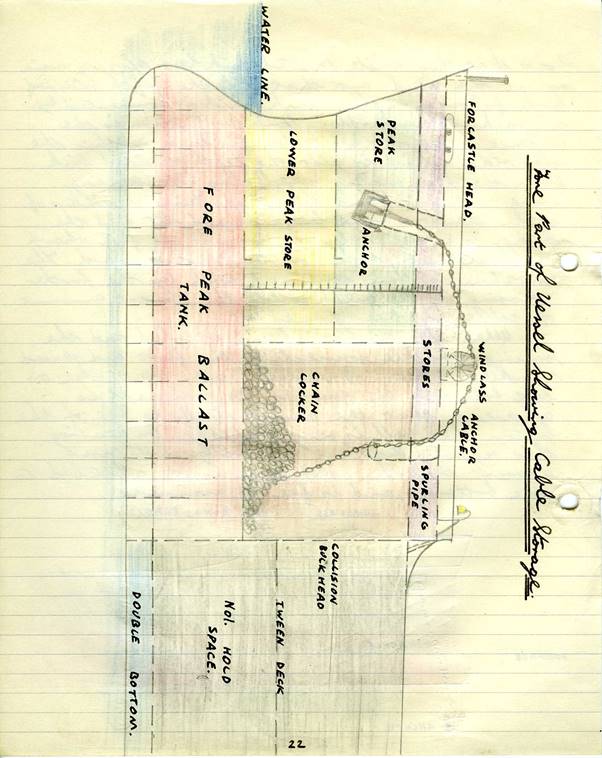 Fore Part of Vessel Showing Cable Storage.
FORCASTLE HEAD.
WINDLASS
ANCHOR
CABLE.
PEAK
STORE
ANCHOR
STORES
SPURLING
PIPE
WATER LINE.
LOWER PEAK STORE
CHAIN
LOCKER
COLLISION
BULKHEAD
FORE PEAK BALLAST
TANK.
TWEEN DECK
No1. HOLD
SPACE.
DOUBLE BOTTOM.
22